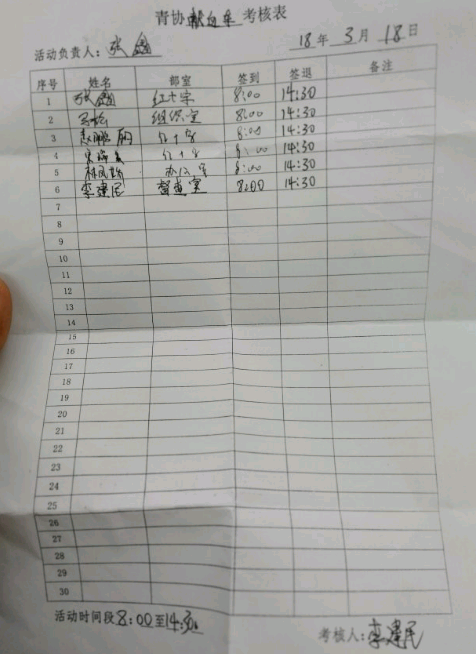 青协献血车考核表
活动负责人：张鑫 18年3月18日
序号 姓名 部室 签到 签退 备注
1 张鑫 红十字 8:00 14:30
2 组织室 8:00 14:30
3 赵鹏 红十字 8:00 14:30
4 红十字 8:00 14:30
5 办公室 8:00 14:30
6 李建民 督查室 8:00 14:30
7
8
9
10
11
12
13
14
15
16
17
18
19
20
21
22
23
24
25
26
27
28
29
30
活动时间段8:00至14:30 考核人：李建民